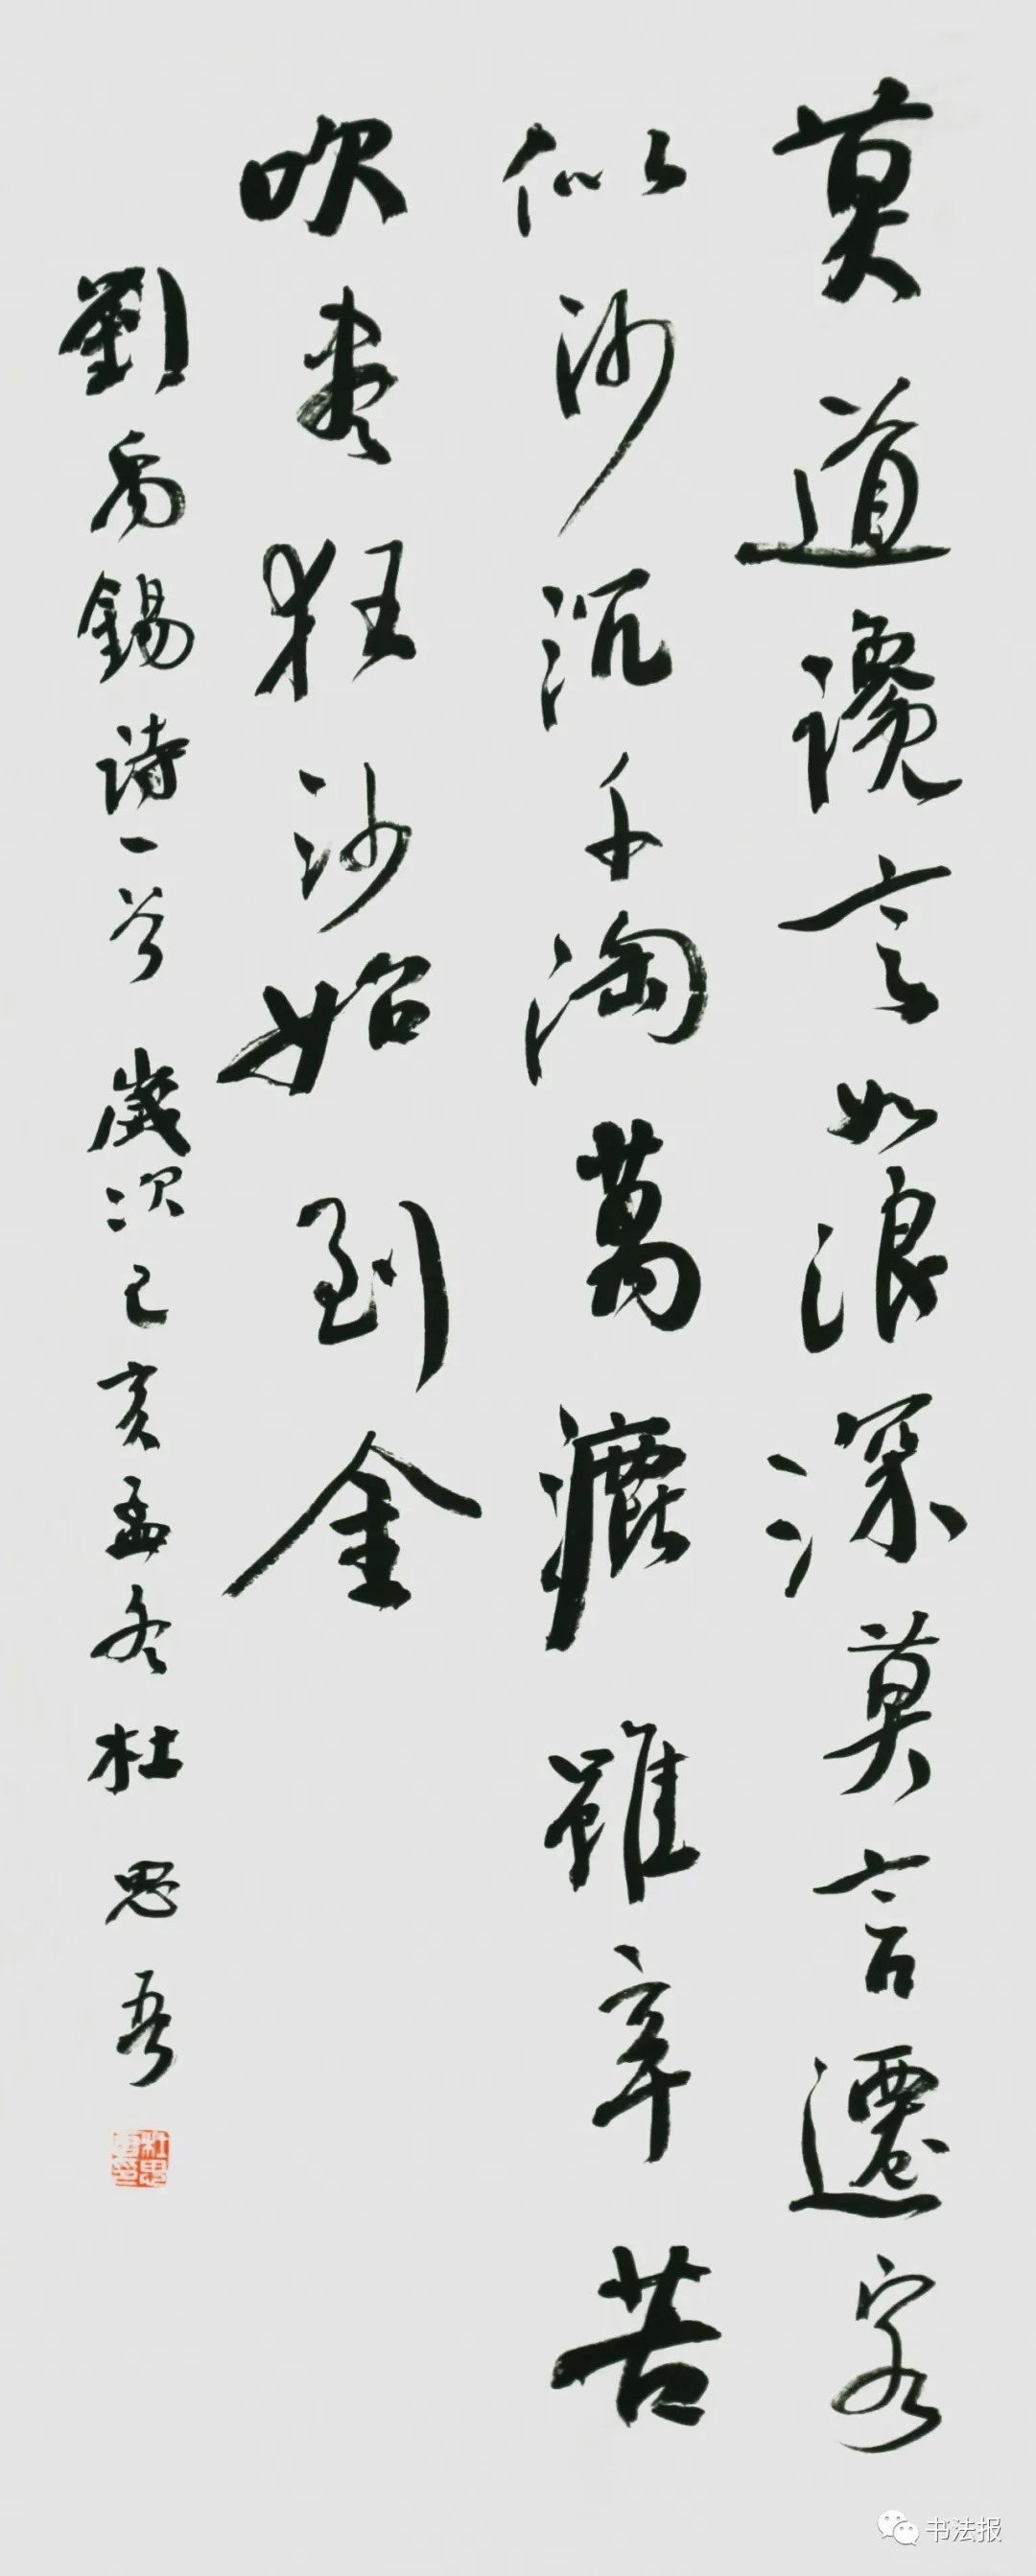 莫道讒言如浪深莫言遷客
似沙沉千淘萬漉雖辛苦
吹盡狂沙始到金
劉禹錫詩一首 歲次己亥孟冬 杜思吾
书法报